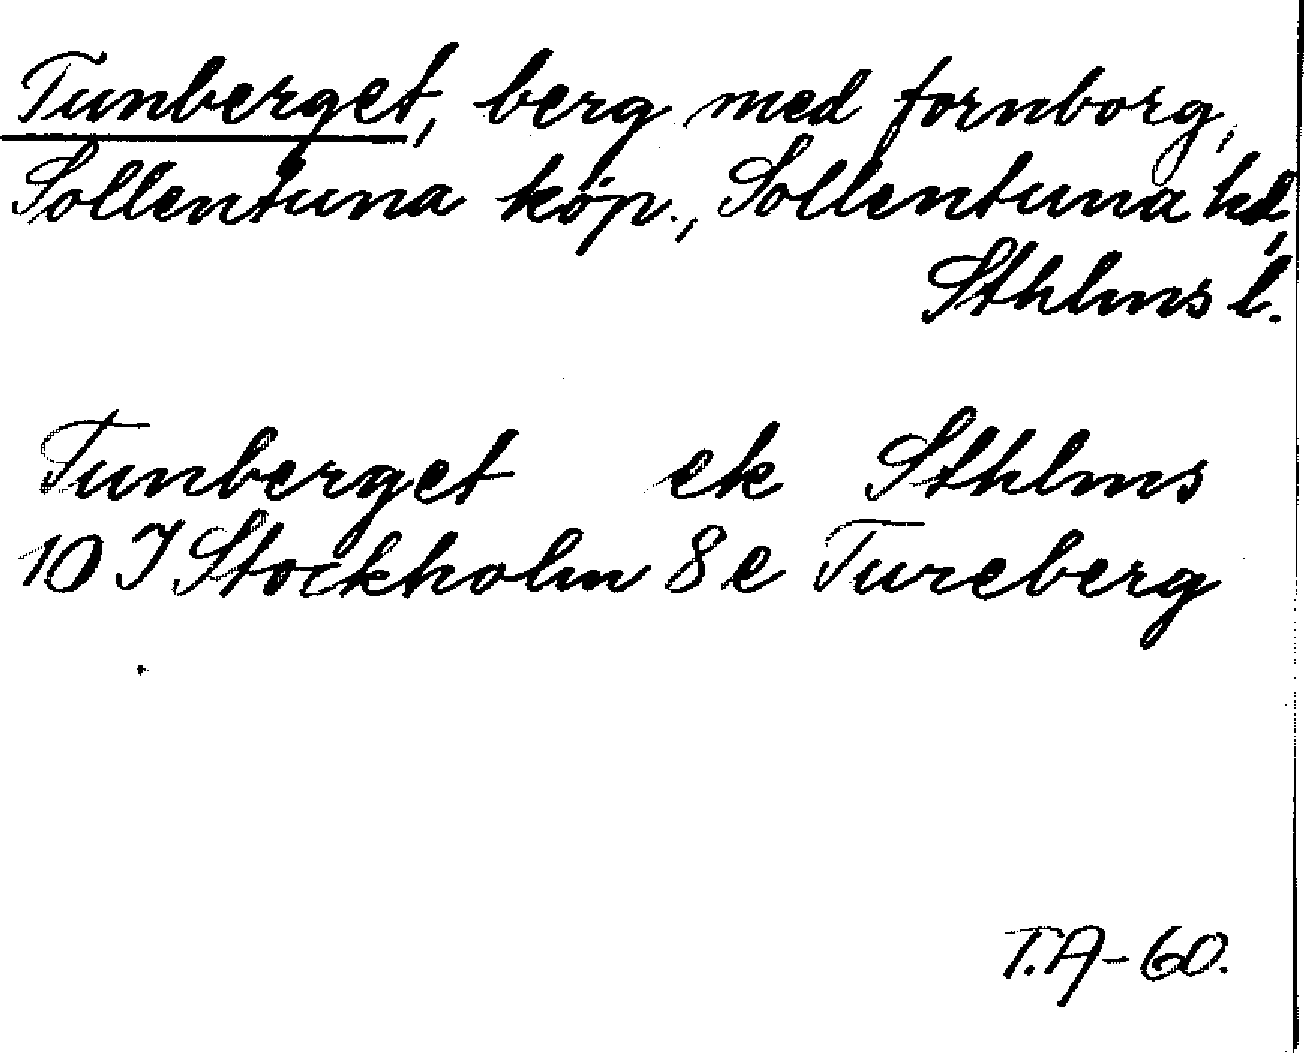 Tunberget, berg med fornborg,
Sollentuna köp., Sollentuna hd,
Sthlms l.
Tunberget ek Sthlms
10 I Stockholm 8 e Tureberg
T.A-60.